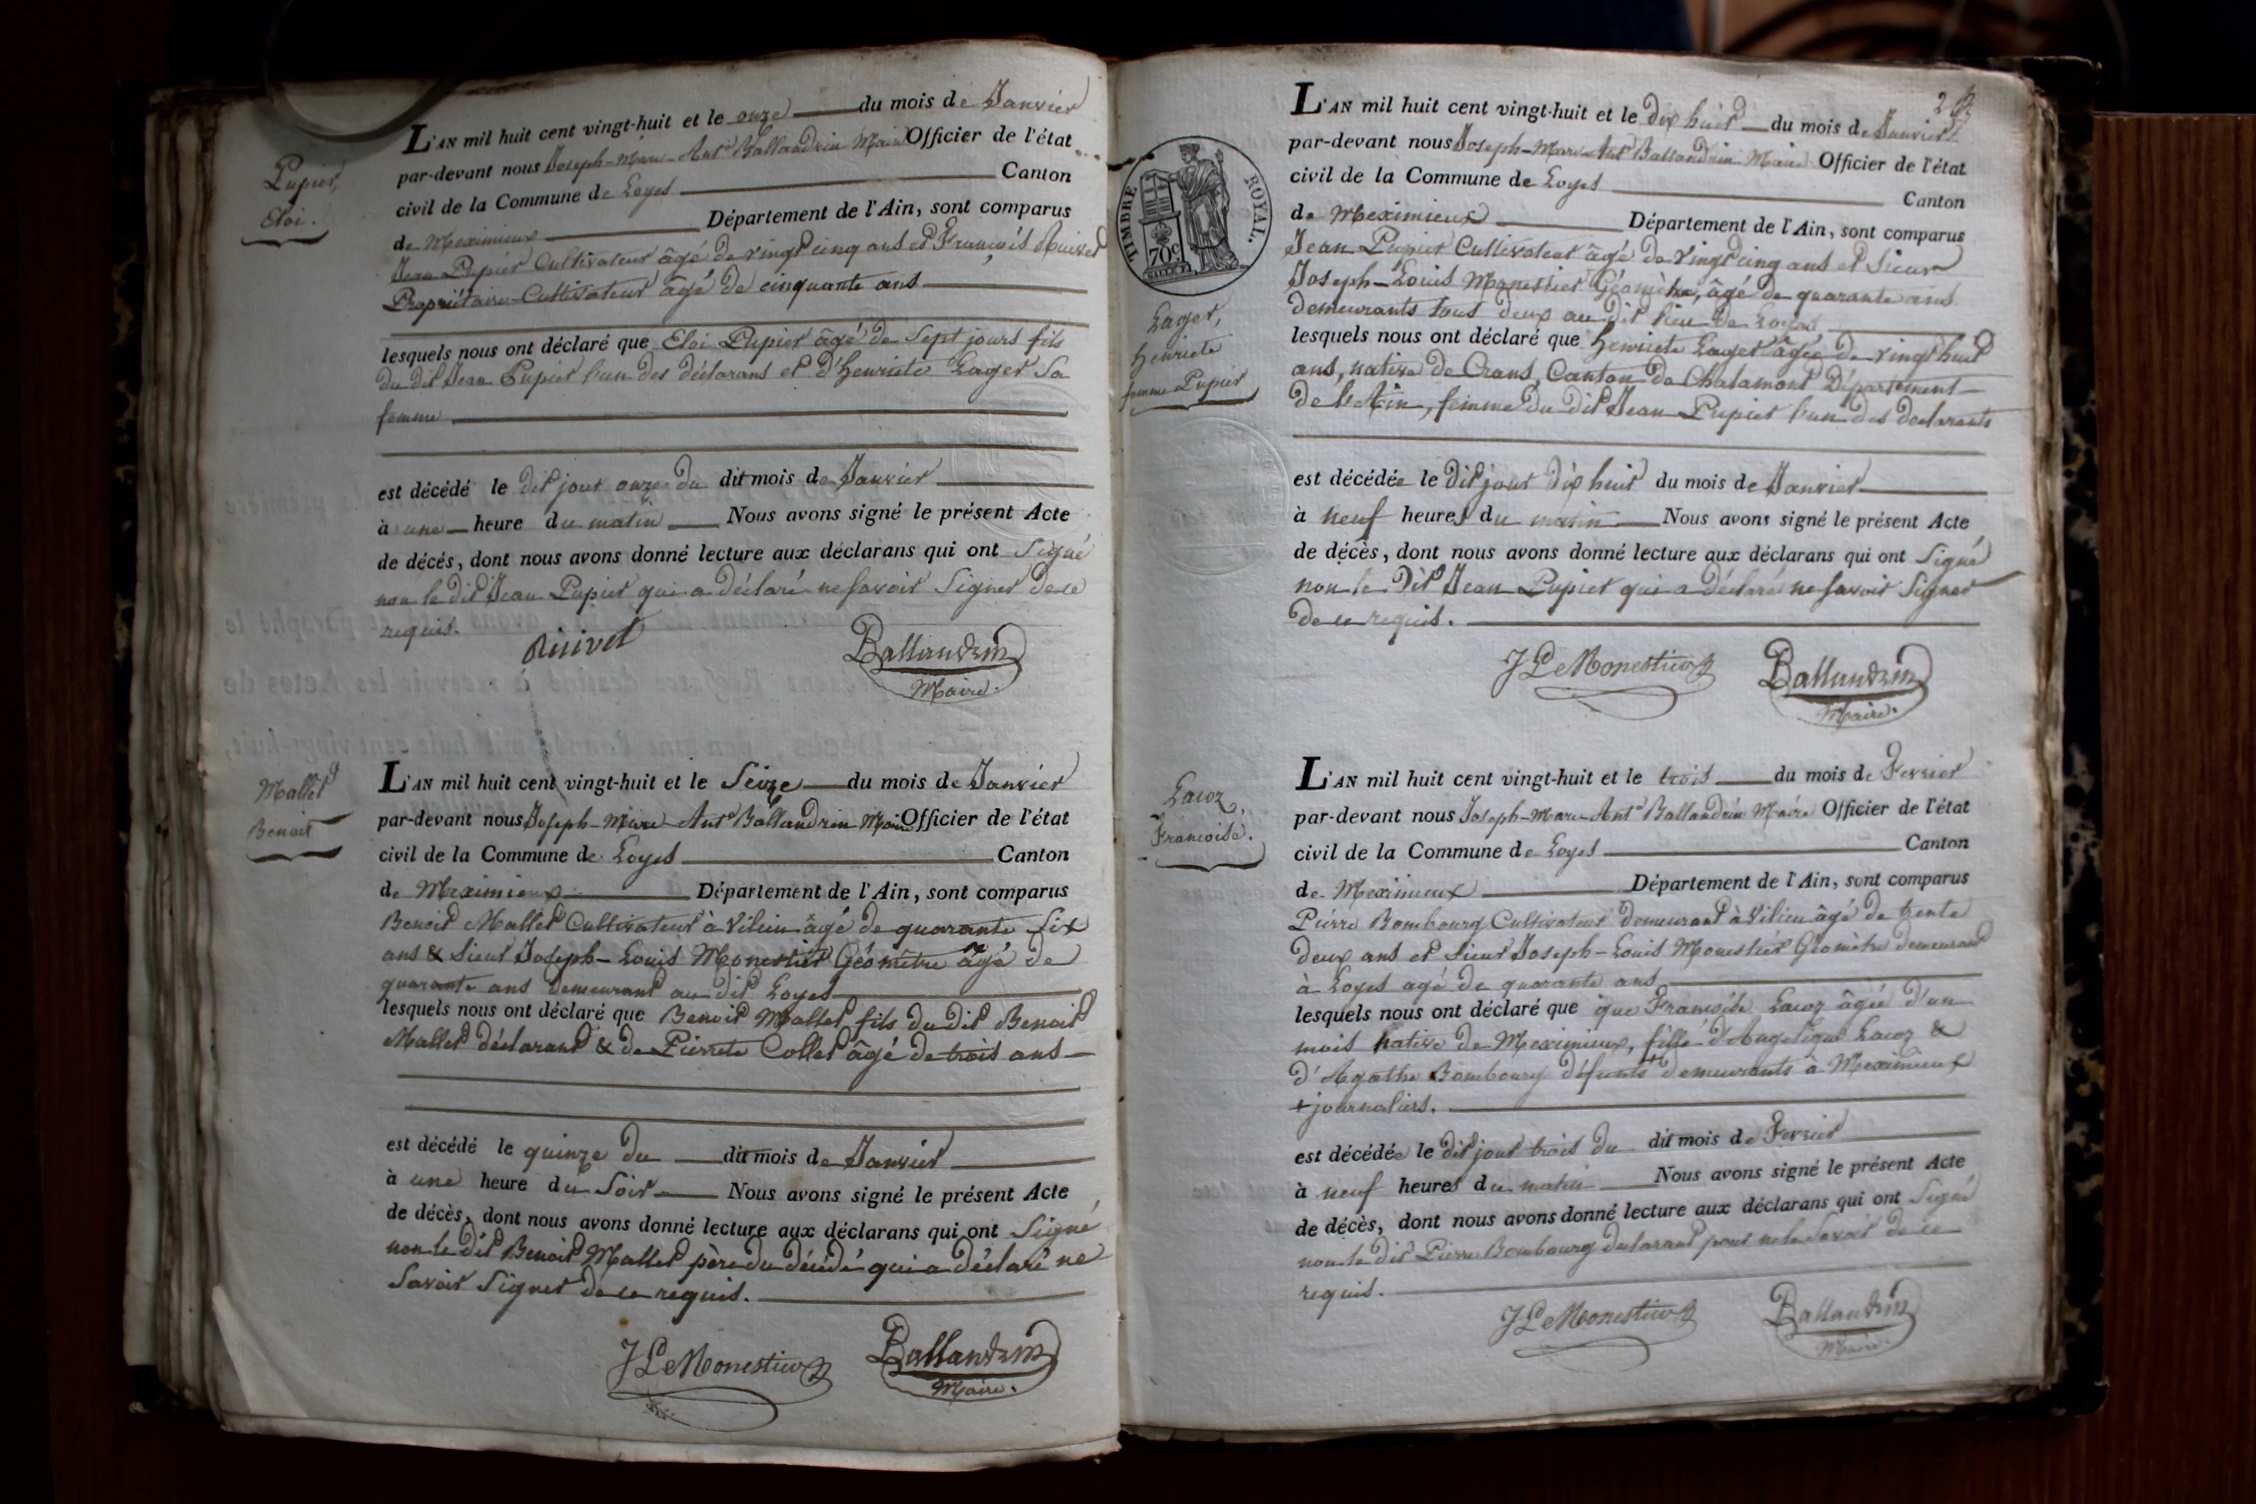 Pupier,
Eloi.
L'AN mil huit cent vingt-huit et le onze du mois de Janvier
par-devant nous Joseph-Marie-Ant.e Ballandrin Maire Officier de l'état
civil de la Commune de Loyes Canton
de Meximieux Département de l'Ain, sont comparus
Jean Pupier Cultivateur âgé de vingt cinq ans et François Ruivet
Propriétaire-Cultivateur âgé de cinquante ans
lesquels nous ont déclaré que Eloi Pupier âgé de Sept jours fils
du dit Jean Pupier l'un des déclarans et d'henriete Lager Sa
femme
est décédé le dit jour onze du dit mois de Janvier
à une heure du matin Nous avons signé le présent Acte
de décès, dont nous avons donné lecture aux déclarans qui ont Signé
non le dit Jean Pupier qui a déclaré ne savoir Signer de ce
requis.
Ruivet Ballandrin
Maire.
Mallet
Benoit
L'AN mil huit cent vingt-huit et le Seize du mois de Janvier
par-devant nous Joseph-Marie-Ant.e Ballandrin Maire Officier de l'état
civil de la Commune de Loyes Canton
de Meximieux Département de l'Ain, sont comparus
Benoit Mallet Cultivateur à Vilieu âgé de quarante Six
ans & Sieur Joseph-Louis Monestier Géomètre âgé de
quarante ans demeurant au dit Loyes
lesquels nous ont déclaré que Benoit Mallet fils du dit Benoit
Mallet déclarant & de Pierrete Collet âgé de trois ans
est décédé le quinze du dit mois de Janvier
à une heure du Soir Nous avons signé le présent Acte
de décès, dont nous avons donné lecture aux déclarans qui ont Signé
non le dit Benoit Mallet père du décédé qui a déclaré ne
Savoir Signer de ce requis.
J L Monestier Ballandrin
Maire.
2
TIMBRE ROYAL.
70c
Lager,
henriete
femme Pupier
L'AN mil huit cent vingt-huit et le dix huit du mois de Janvier
par-devant nous Joseph-Marie-Ant.e Ballandrin Maire Officier de l'état
civil de la Commune de Loyes Canton
de Meximieux Département de l'Ain, sont comparus
Jean Pupier Cultivateur âgé de vingt cinq ans et Sieur
Joseph-Louis Monestier Géomètre, âgé de quarante ans
demeurants tous deux au dit lieu de Loyes
lesquels nous ont déclaré que henriete Lager âgée de vingt huit
ans, native de Crans, Canton de Chalamont Département
de l'Ain, femme du dit Jean Pupier l'un des déclarants
est décédée le dit jour dix huit du mois de Janvier
à neuf heures du matin Nous avons signé le présent Acte
de décès, dont nous avons donné lecture aux déclarans qui ont Signé
non le dit Jean Pupier qui a déclaré ne savoir Signer
de ce requis.
J L Monestier Ballandrin
Maire.
Lacoz,
Francoise.
L'AN mil huit cent vingt-huit et le trois du mois de Fevrier
par-devant nous Joseph-Marie-Ant.e Ballandrin Maire Officier de l'état
civil de la Commune de Loyes Canton
de Meximieux Département de l'Ain, sont comparus
Pierre Bombourg Cultivateur demeurant à Vilieu âgé de trente
deux ans et Sieur Joseph-Louis Monestier Géomètre demeurant
à Loyes agé de quarante ans
lesquels nous ont déclaré que que Françoise Lacoz âgée d'un
mois native de Meximieux, fille d'Angelique Lacoz &
d'Agathe Bombourg défunts + demeurants à Meximieux
+ journaliers.
est décédée le dit jour trois du dit mois de Fevrier
à neuf heures du matin Nous avons signé le présent Acte
de décès, dont nous avons donné lecture aux déclarans qui ont Signé
non le dit Pierre Bombourg declarant pour ne le Savoir de ce
requis.
J L Monestier Ballandrin
Maire.